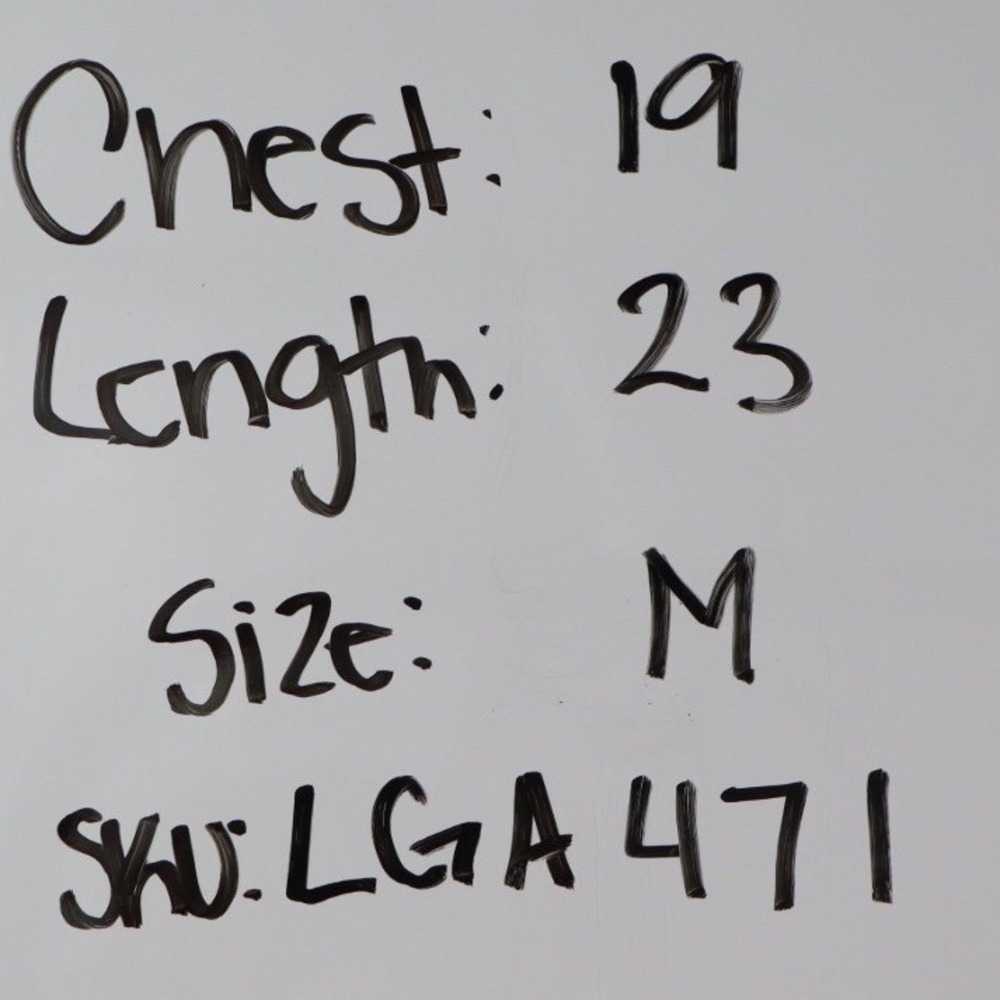 Chest: 19
Length: 23
Size: M
SKU: LGA471